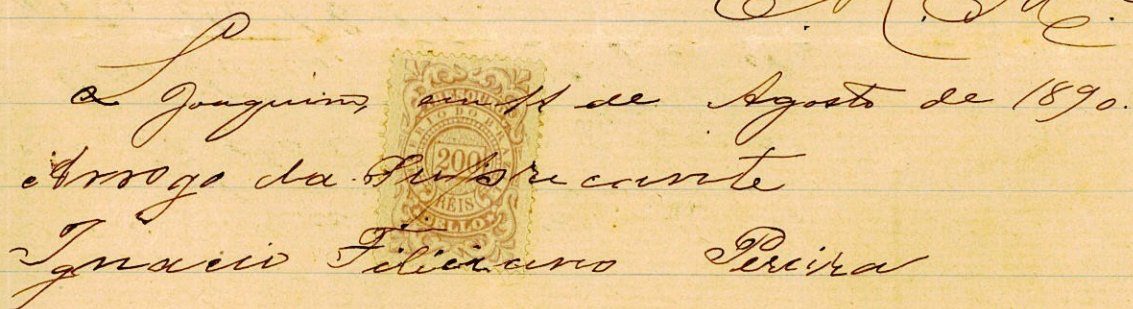 E. R. M.ce
S. Joaquim, em 11 de Agosto de 1890.
Arrogo da Supricante
Ignacio Feliciano Pereira
THESOURO
IMPERIO DO BRAZIL
200
RÉIS
SELLO